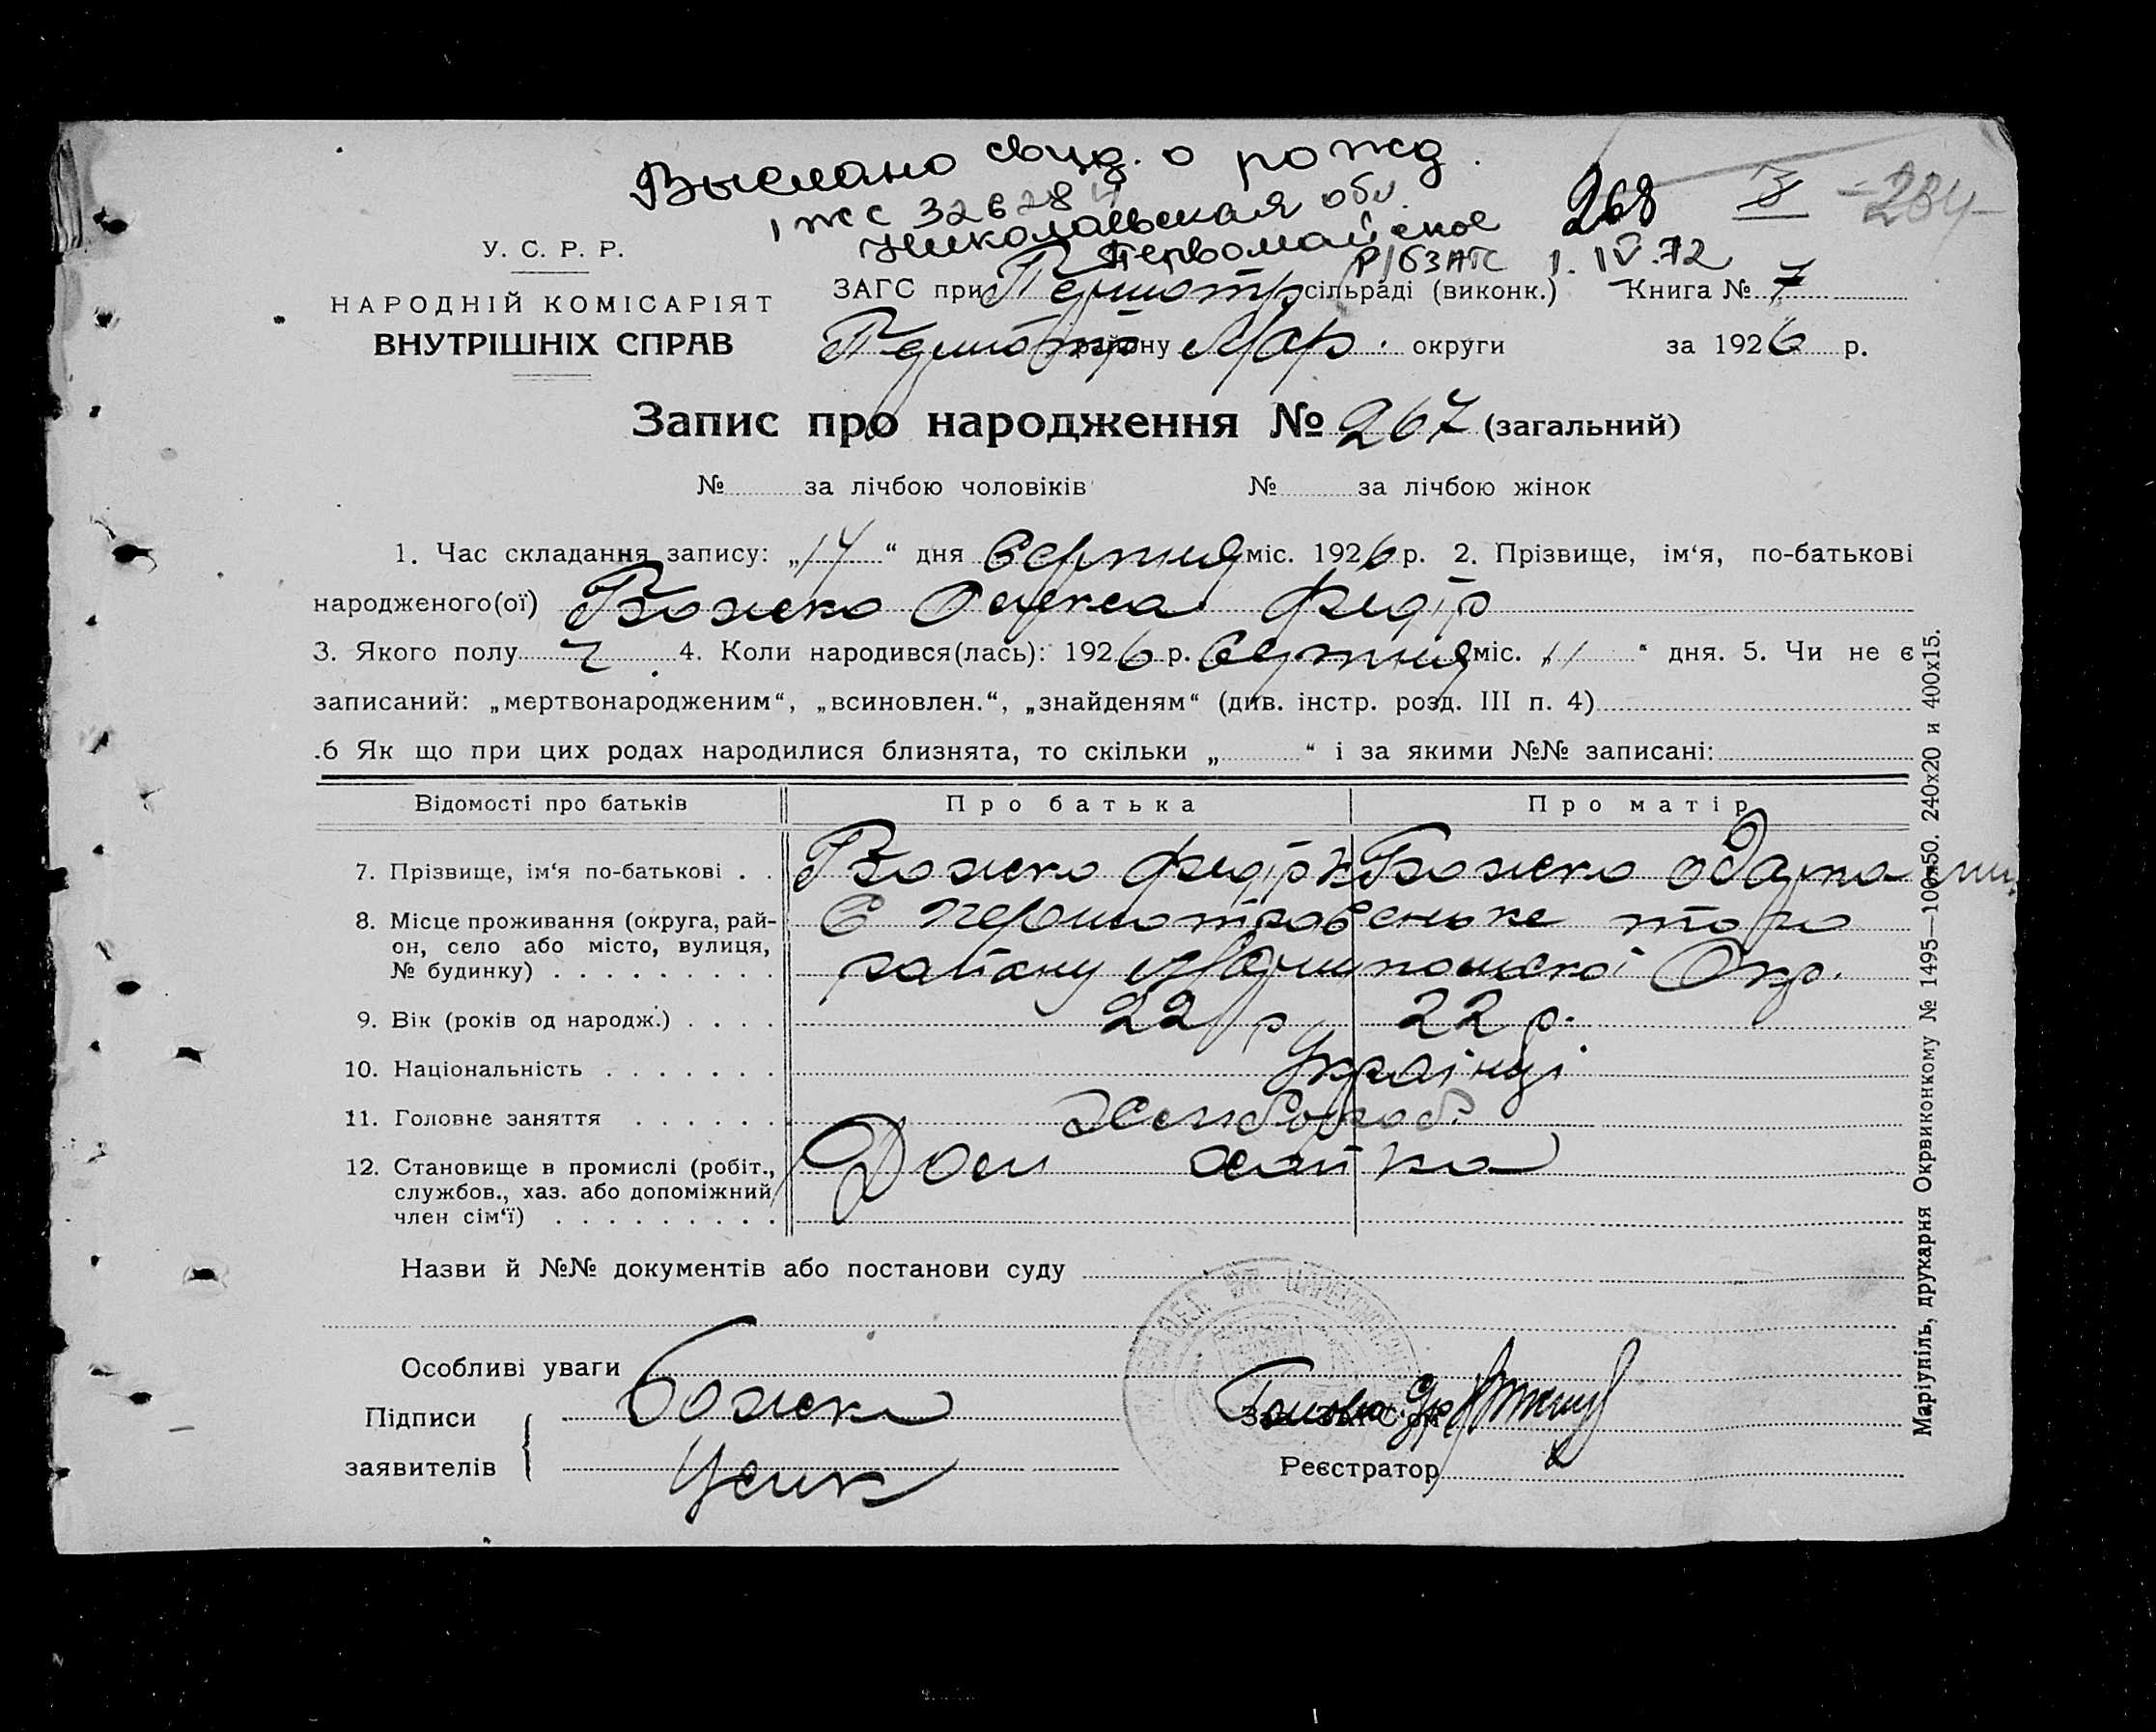 Выслано свид. о рожд.
I ЖС 326284
Николаевская обл.
Первомайское
268
3
-284-
р/бЗАГС 1.IV.72
У. С. Р. Р.
НАРОДНІЙ КОМІСАРІЯТ
ВНУТРІШНІХ СПРАВ
ЗАГС при Першотр сільраді (виконк.) Книга № 7
Першотр району Мар. округи за 1926 р.
Запис про народження № 267 (загальний)
№ за лічбою чоловіків № за лічбою жінок
1. Час складання запису: „14“ дня Серпня міс. 1926 р. 2. Прізвище, ім‘я, по-батькові
народженого(ої) Божко Олекса Федір
3. Якого полу ч. 4. Коли народився(лась): 1926 р. Серпня міс. „11“ дня. 5. Чи не є
записаний: „мертвонародженим“, „всиновлен.“, „знайденям“ (див. інстр. розд. III п. 4)
.6 Як що при цих родах народилися близнята, то скільки „ “ і за якими №№ записані:
Відомості про батьків Про батька Про матір
7. Прізвище, ім‘я по-батькові . . Божко Федір К Божко Одарка
8. Місце проживання (округа, рай- С Першотравеньке того
он, село або місто, вулиця,
№ будинку) . . . . . . . . . району Маріупольської Окр.
9. Вік (років од народж.) . . . . 22 р 22 р.
10. Національність . . . . . . . Українці
11. Головне заняття . . . . . . Хлібороб.
12. Становище в промислі (робіт., Дом хазяйка
службов., хаз. або допоміжний
член сім‘ї) . . . . . . . . .
Назви й №№ документів або постанови суду
Особливі уваги
Підписи Божко Голова
заявителів Усик Реєстратор
Маріупіль, друкарня Окрвиконкому № 1495—100х50. 240х20 и 400х15.